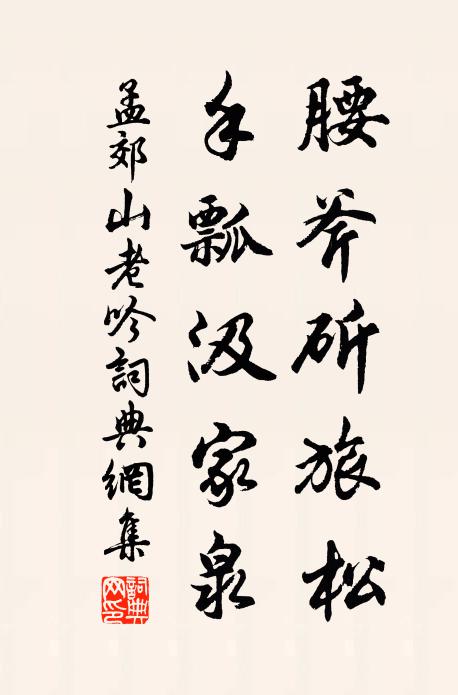 腰斧斫旅松
手瓢汲家泉
孟郊山老吟詞典網集
詞典網印